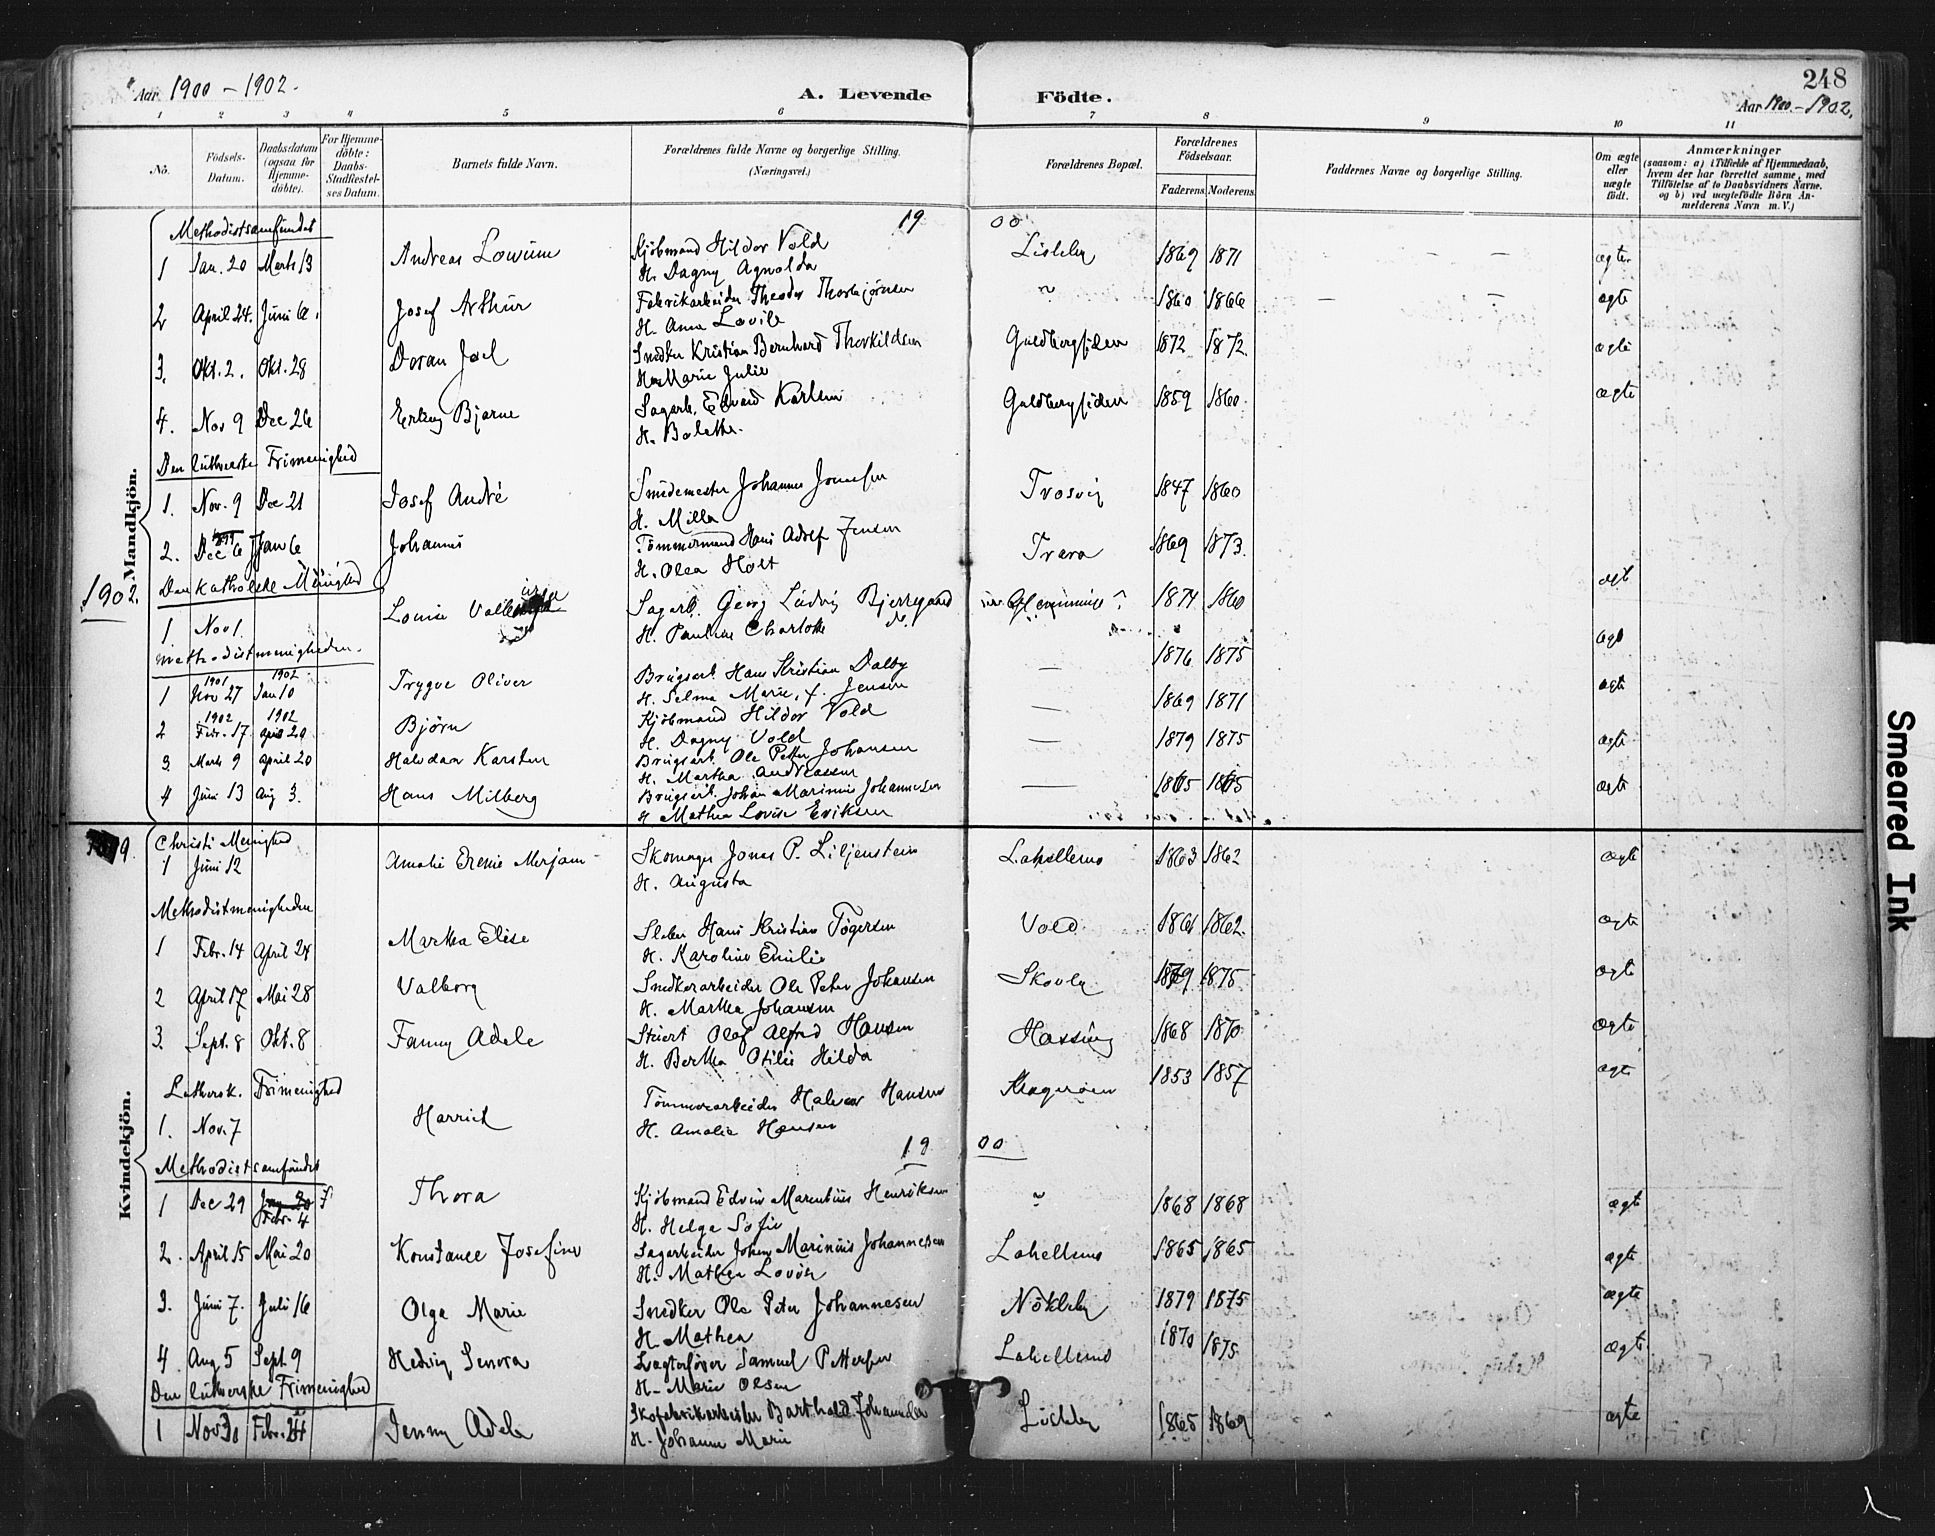 Aar 1900 – 1902. A. Levende Födte. 248
Aar 1900 – 1902.
1 2 3 4 5 6 7 8 9 10 11
No. Födsels-Datum. Daabsdatum (ogsaa for Hjemmedöbte). For Hjemmedöbte: Daabs-Stadfæstelses Datum. Barnets fulde Navn. Forældrenes fulde Navne og borgerlige Stilling. (Næringsvei.) Forældrenes Bopæl. Forældrenes Födselsaar. Faderens. Moderens. Faddernes Navne og borgerlige Stilling. Om ægte eller uægte födt. Anmærkninger (saasom: a) i Tilfælde af Hjemmedaab, hvem der har forrettet samme, med Tilföielse af to Daabsvidners Navne. og b) ved uægtefödte Börn Anmelderens Navn m. V.)
Mandkjön.
Methodistsamfundet 19 00
1 Jan. 20 Marts 13 Andreas Kjöbmand Hildor Vold Lisleby 1869 1871 ægte
H. Dagny Agnolda
2 April 24. Juni 6. Josef Arthur Fabrikarbeider Theodor Thorbjørnsen " 1860 1866 ægte
H. Anna Lovile
3. Okt. 2. Okt. 28 Doran Joel Snedker Kristian Bernhard Thorkildsen Guldbergsiden 1872 1872. ægte
H. Marie Julie
4. Nov 9 Dec 26 Erling Bjarne Sagarb. Edvard Karlsen Guldbergsiden 1859 1860. ægte
H. Bolethe.
Den lutherske Frimenighed
1. Nov. 9 Dec 21 Josef André Smedemester Johannes Josefsen Trosvig 1847 1860
H. Milla
2. 1899 Dec 6 Jan 6 Johannes Tömmermand Hans Adolf Jensen Trara 1869 1873.
H. Olea Holt
1902.
Den katholske Menighed
1. Nov 1. Louise Sagarb. Georg Ludvig Bjerregaard Glemminge 1874 1860 ægt
H. Pauline Charlotte
Methodistmenigheden.
1 1901 Nov 27 1902 Jan 10 Trygve Oliver Brugsarb. Hans Kristian Dalby — 1876 1875 ægt
H. Selma Marie, f. Jensen
2 1902 Febr. 17 1902 April 20 Björn Kjöbmand Hildor Vold — 1869 1871 ægte
H. Dagny Vold
3. Marts 9 April 20 Halvdan Karsten Brugsarb. Ole Petter Johansen — 1879 1875 ægte
H. Martha Andreassen
4 Juni 13 Aug 3. Hans Milberg Brugsarb. Johan Marinius Johannesen — 1865 1865 ægte
H. Mathea Lovise Eriksen
Kvindekjön.
Christi Menighed
1 Juni 12 Amalie Irenie Merjam Skomager Jonas P. Liljenstein Lahellemo 1863 1862 ægte
H. Augusta
Methodistmenigheden
1 Febr. 14 April 24 Martha Elise Hans Kristian Tögersen Vold 1861 1862. ægte
H. Karoline Emilie
2 April 17 Mai 28 Valborg Snedkerarbeider Ole Peter Johansen Skovly 1879 1875. ægte
H. Martha Johansen
3. Sept. 8 Okt. 8 Fanny Adele Stuert Olaf Alfred Hansen Hassing 1868 1870 ægte
H. Bertha Otilie Hilda
Luthersk. Frimenighed
1. Nov. 7 Harriet Tömmerarbeider Halvor Hansen Kragerøen 1853 1857 ægte
H. Amalie Hansen
Methodistsamfundet 19 00
1 Dec 29 Jan 20 Febr. 4 Thora Kjöbmand Edvin Marentius Henriksen " 1868 1868 ægte
H. Helga Sofie
2. April 15 Mai 20 Konstance Josefine Sagarbeider Johan Marinius Johannesen Lahellemo 1865 1865 ægte
H. Mathea Lovise
3. Juni 7. Juli 16 Olga Marie Snedker Ole Peter Johannesen Nökleby 1879 1875 ægte
H. Mathea
4 Aug 5 Sept. 9 Hedvig Senora Lægterfører Samuel Pettersen Lahellemo 1870 1875 ægte
H. Marie Olsen
Den lutherske Frimenighed
1 Nov 30 Febr. 24 Jenny Adele Skofabrikarbeider Barthold Lisleby 1865 1869 ægte
H. Johanne Marie
Smeared Ink